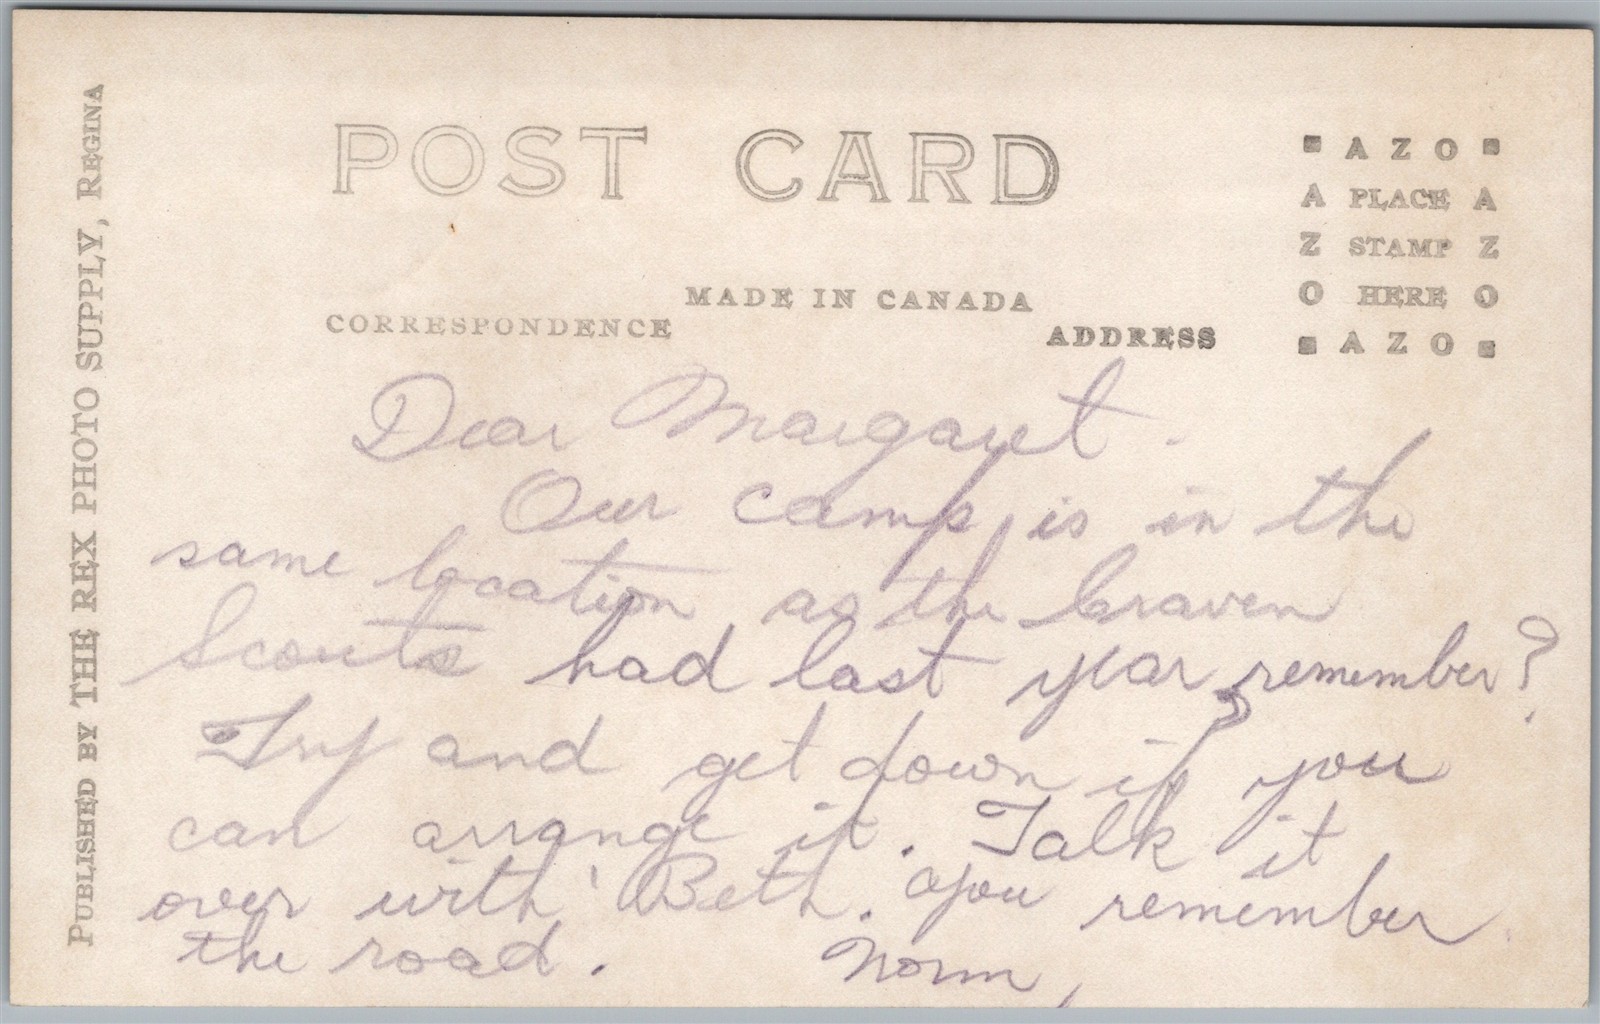 POST CARD
MADE IN CANADA
CORRESPONDENCE
ADDRESS
■ A Z O ■
A PLACE A
Z STAMP Z
O HERE O
■ A Z O ■
PUBLISHED BY THE REX PHOTO SUPPLY, REGINA
Dear Margaret.
Our camp is in the
same location as the Craven
Scouts had last year, remember?
Try and get down if you
can arrange it. Talk it
over with Beth. you remember
the road. Norm,